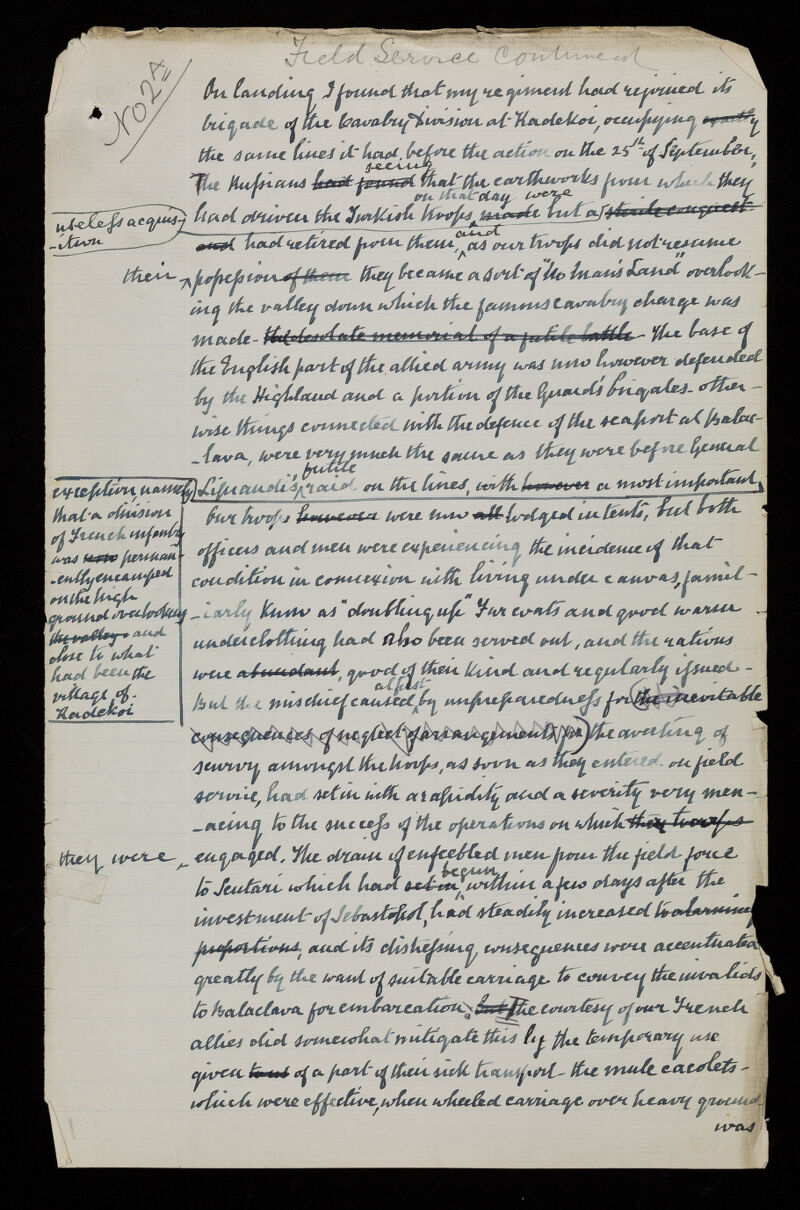 Field Service Continued
No 2A
On landing I found that my regiment had rejoined its
brigade of the Cavalry Division at Kadekoi, occupying
the same lines it had before the action on the 25th of September,
seeing
The Russians had found that the earthworks from which they
on that day were
had driven the Turkish troops, made but a sterile conquest
useless acquis-
-ition
and
and had retired from them, as our troops did not resume
their possession of them they became a sort of "No Man's Land" overlook-
ing the valley down which the famous cavalry charge was
made - the desolate memorial of a futile battle - The base of
the English part of the allied army was now however defended
by the Highland and a portion of the Guards brigades - other-
wise things connected with the defence of the seaport at Balac-
-lava, were very much the same as they were before General
futile
Liprandi's raid on the lines, with however a most important
exception, namely
that a division
of French infantry
was now perman-
-ently encamped
on the high
ground overlooking
the valley - and
close to what
had been the
village of
Kadekoi
Our troops however were now all lodged in tents, but both
officers and men were experiencing the incidence of that
condition in connexion with living under canvas, famil-
-iarly known as "doubling up" Fur coats and good warm
underclothing had also been served out, and the rations
were abundant, good of their kind and regularly issued -
albeit
But the mischief caused, by unpreparedness for the inevitable
consequences of neglect of arrangements for the averting of
scurvy amongst the troops, as soon as they entered on field
service, had set in with a rapidity and a severity very men-
-acing to the success of the operations on which they troops
they were engaged. The drain of enfeebled men from the field force
begun
to Scutari which had set in, within a few days after the
investment of Sebastopol, had steadily increased to alarming
proportions, and its distressing consequences were accentuated
greatly by the want of suitable carriage to convey the invalids
to Balaclava for embarcation; but the courtesy of our French
allies did somewhat mitigate this by the temporary use
given to us of a part of their sick transport - the mule cacolets -
which were effective, when wheeled carriage over heavy ground
was